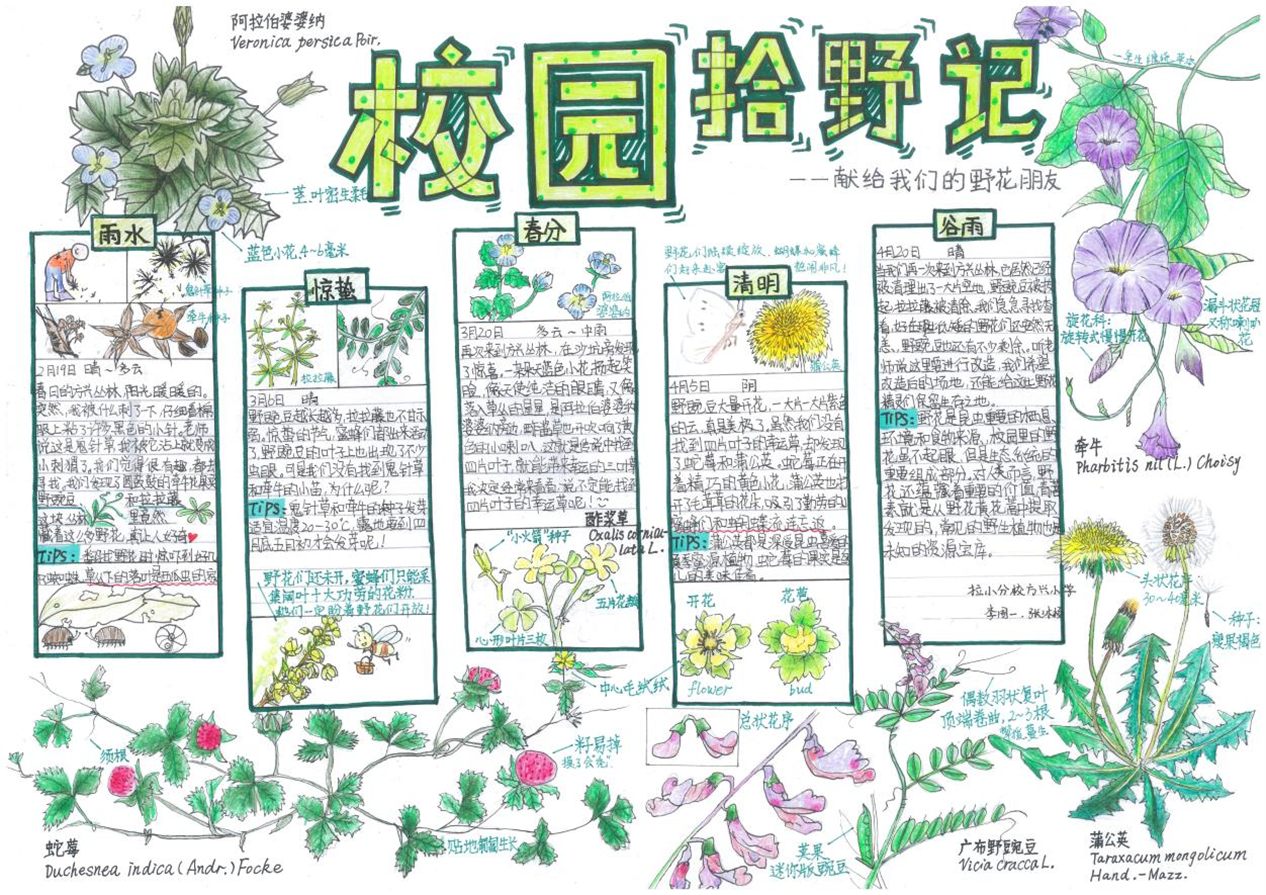 阿拉伯婆婆纳
Veronica persica Poir.
校园拾野记
——献给我们的野花朋友
一年生缠绕草本
茎叶密生柔毛
蓝色小花,4~6毫米
雨水
鬼针草种子
牵牛种子
2月19日 晴~多云
春日的方兴丛林,阳光暖暖的。
突然,我被什么刺了下,仔细看棉
服上粘了许多黑色的小针。老师
说这是鬼针草
小刺猬了。我们觉得很有趣,都去
寻找。我们发现了圆鼓鼓的牵牛花果实
野豌豆 和拉拉藤
这块丛林 里竟然
藏着这么多野花,真让人好奇
TIPS:
惊蛰
拉拉藤
3月6日 晴
野豌豆越长越多,拉拉藤也不甘示
弱。惊蛰的节气,蜜蜂们首出来活动
了,野豌豆的叶子上也出现了不少
虫眼。可是我们没有找到鬼针草
和牵牛的小苗,为什么呢?
TIPS:鬼针草和牵牛的种子发芽
适宜温度20~30℃,露地要到四
月底五月初才会发芽呢!
野花们还未开,蜜蜂们只能采
集阔叶十大功劳的花粉,
他们一定盼着野花们开放!
春分
阿拉伯
婆婆纳
3月20日 多云~中雨
再次来到方兴丛林,在沙坑旁发现
了惊喜,一朵朵蓝色小花扬起笑
脸,像天使纯洁的眼睛,又像
落入草丛的星星,是阿拉伯婆婆纳
四片叶子,就能带来幸运的三叶草
我决定经常来看看,说不定能找到
四片叶子的幸运草呢!
酢浆草
Oxalis corniculata L.
“小火箭”种子
五片花瓣
心形叶片三枚
野花们陆续绽放,蝴蝶和蜜蜂
们赶来赴宴 热闹非凡!
清明
蒲公英
4月5日 阴
野豌豆大量开花,一大片一大片紫色
的云,真是美极了。虽然我们没有
找到四片叶子的幸运草,却发现
了蛇莓和蒲公英。蛇莓正在开
着精巧的黄色小花,蒲公英也打
开毛茸茸的花朵,吸引了勤劳的小
蜜蜂们和蝴蝶流连忘返。
TIPS:蒲公英都是深受昆虫喜爱的
开花
flower
花苞
bud
谷雨
4月20日 晴
当我们再一次来到方兴丛林,它居然已经
被清理出了一大片空地,野豌豆被拔
起,拉拉藤被清除。我们急急寻找查
看,好在蝴蝶
恙,野豌豆也还有不少剩余。听老
师说这里要进行改造,我们希望
改造后的场地,还能给这些野花
精灵们保留生存之地。
TIPS:野花是昆虫重要的栖息
环境和食物来源,校园里的野
花虽不起眼,但是生态系统的
重要组成部分。对人类而言,野
花还蕴藏着重要的价值,青蒿
素就是人从野花黄花蒿中提取
发现的,常见的野生植物也是
未知的资源宝库。
拉小分校方兴小学
旋花科:
旋转式慢慢开花
漏斗状花冠
又称喇叭
花
牵牛
Pharbitis nil (L.) Choisy
头状花序
30~40毫米
种子:
瘦果褐色
蒲公英
Taraxacum mongolicum
Hand.-Mazz.
须根
中心毛绒绒
籽易掉
摸了会“秃”
贴地匍匐生长
蛇莓
Duchesnea indica (Andr.) Focke
总状花序
偶数羽状复叶
顶端卷曲,2~3根
荚果
迷你版豌豆
广布野豌豆
Vicia cracca L.